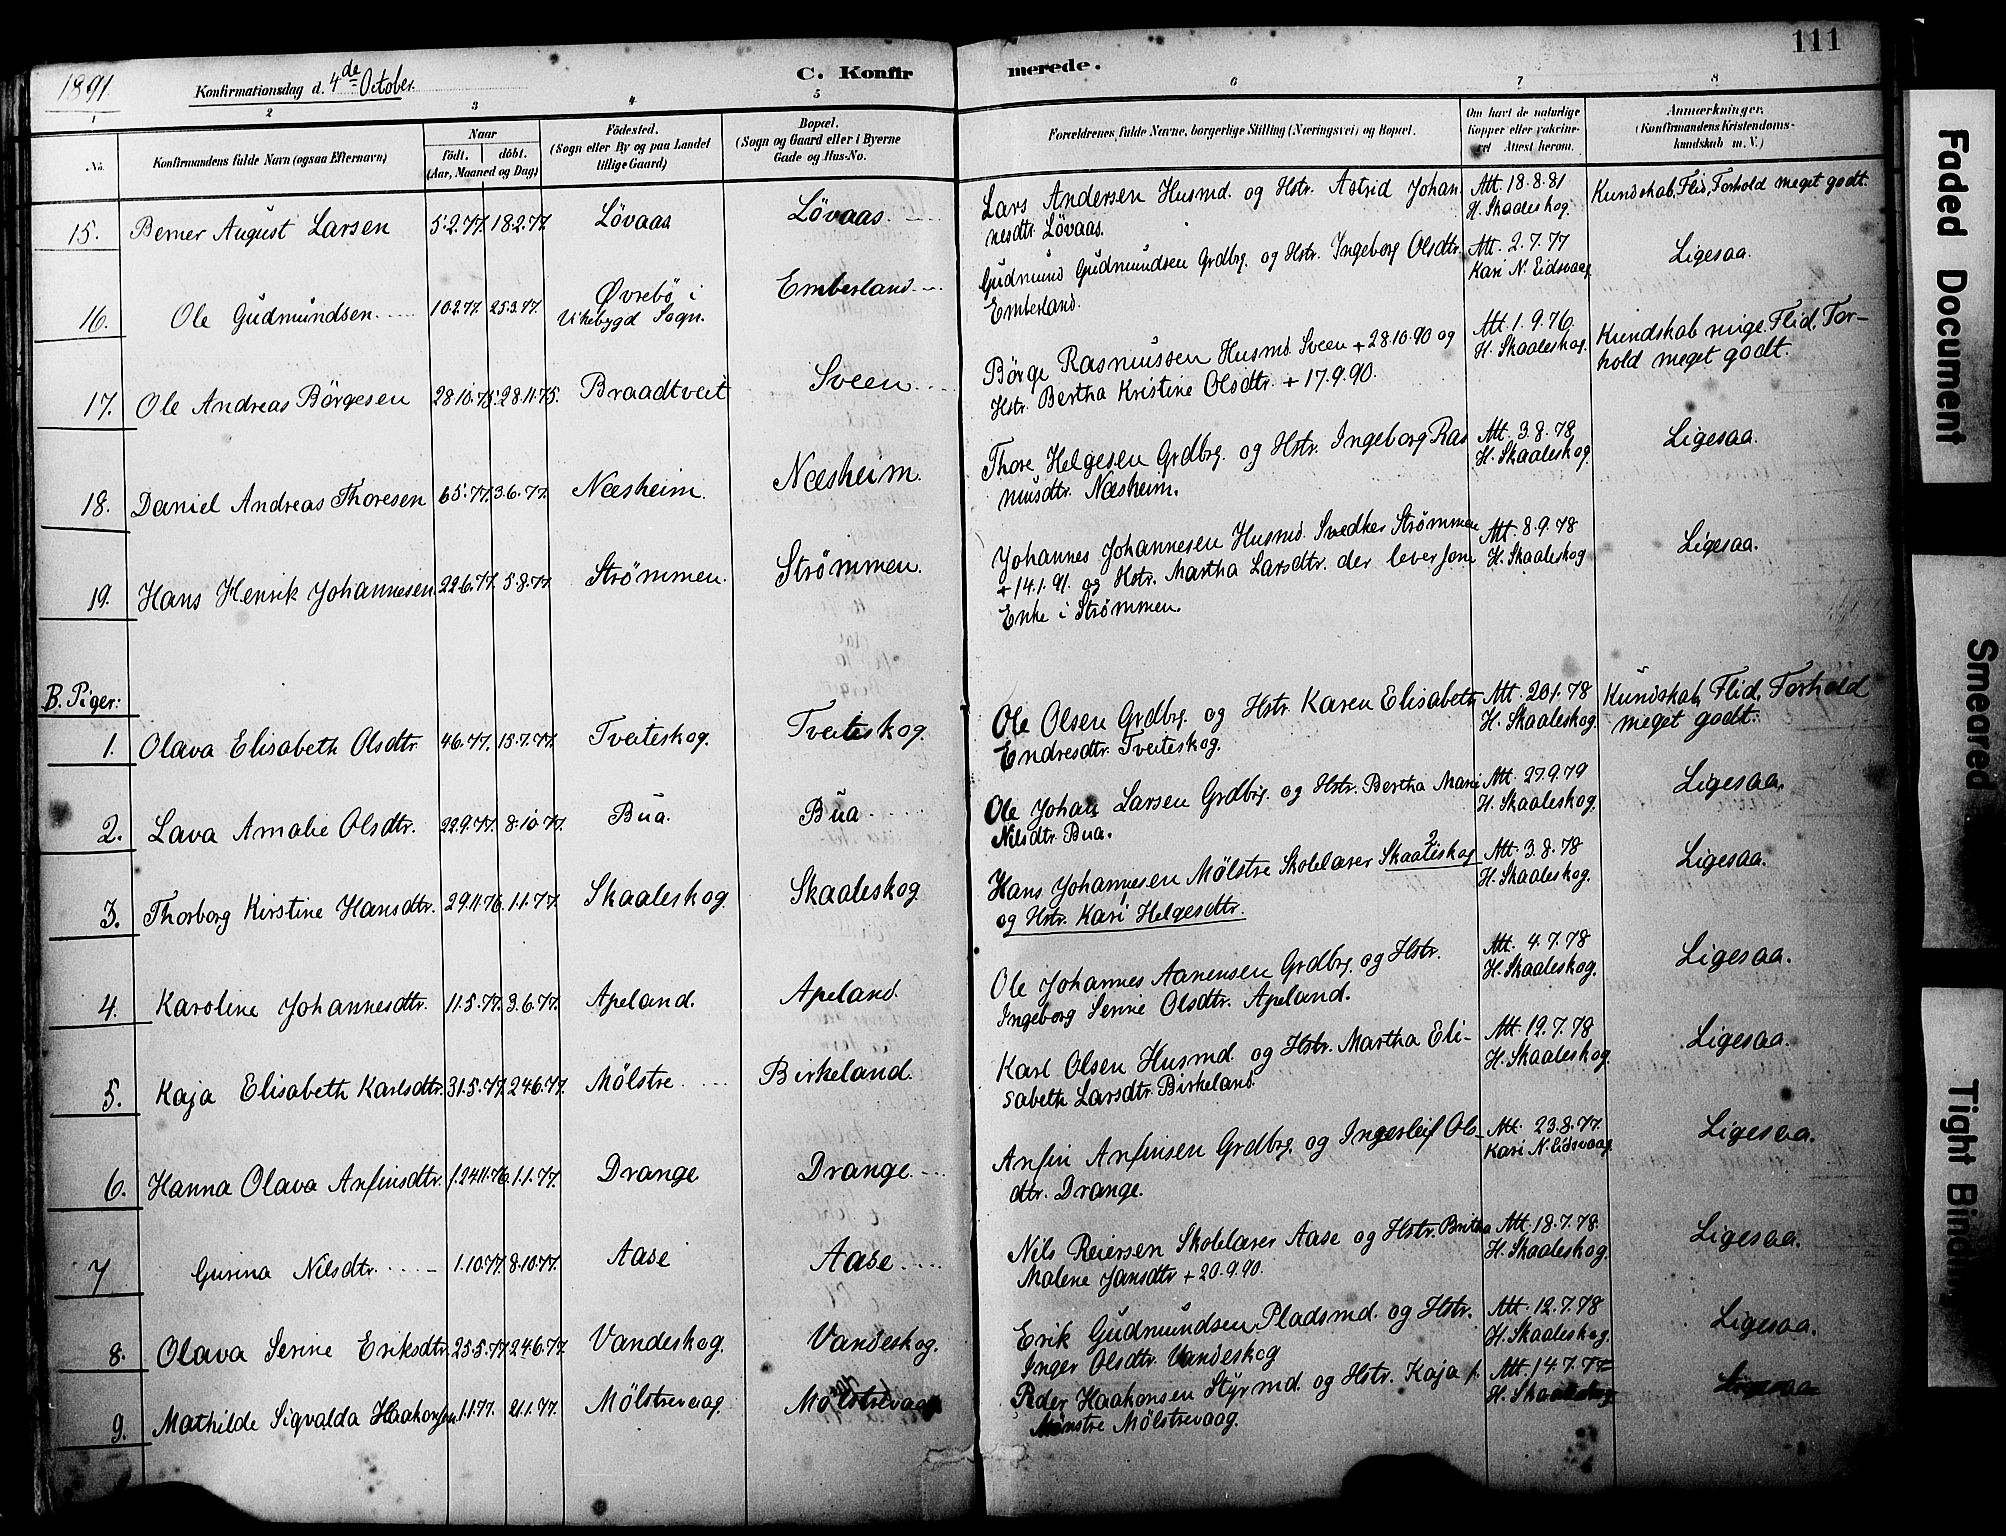 1891.
Konfirmationsdag d. 4de October.
C. Konfir
merede.
111
1
2
3
4
5
6
7
8
No.
Konfirmandens fulde Navn (ogsaa Efternavn)
Naar
födt. döbt.
(Aar, Maaned og Dag)
Födested.
(Sogn eller By og paa Landet
tillige Gaard)
Bopæl.
(Sogn og Gaard eller i Byerne
Gade og Hus-No.
Forældrenes fulde Navne, borgerlige Stilling (Næringsvei) og Bopæl.
Om havt de naturlige
Kopper eller vakcine-
ret Attest herom.
Anmærkninger.
(Konfirmandens Kristendoms-
kundskab m. V.)
15. Berner August Larsen 5.2.77. 18.2.77. Lövaas Lövaas. Lars Andersen Husmd. og Hstr. Astrid Johan Att. 18.8.81 Kundskab, Flid, Forhold meget godt.
nesdtr. Lövaas. H. Skaaleskog.
16. Ole Gudmundsen 10.2.77. 25.3.77. Øvrebö i Emberland Gudmund Gudmundsen Grdbrg. og Hstr. Ingeborg Olsdtr. Att. 2.7.77 Ligesaa.
Vikebygd Sogn. Emberland. Kari N. Eidsvaag
17. Ole Andreas Börgesen 28.10.75. 28.11.75. Braadtveit Sveen Börge Rasmussen Husmd. Sveen + 28.10.90 og Att. 1.9.76. Kundskab mige. Flid, For-
Hstr. Bertha Kristine Olsdtr. + 17.9.90. H. Skaaleskog. hold meget godt.
18. Daniel Andreas Thoresen 6.5.77. 3.6.77. Næsheim. Næsheim. Thore Helgesen Grdbrg. og Hstr. Ingeborg Ras Att. 3.8.78 Ligesaa.
musdtr. Næsheim. H. Skaaleskog
19. Hans Henrik Johannesen 22.6.77. 5.8.77 Strömmen. Strömmen. Johannes Johannesen Husmd. Snedker Strömmen Att. 8.9.78 Ligesaa.
+ 14.1.91. og Hstr. Martha Larsdtr. der lever som H. Skaaleskog
Enke i Strömmen.
B. Piger:
1. Olava Elisabeth Olsdtr. 4.6.77. 15.7.77. Tveiteskog. Tveiteskog Ole Olsen Grdbrg. og Hstr. Karen Elisabeth Att. 20.1.78 Kundskab, Flid, Forhold
Endresdtr. Tveiteskog. H. Skaaleskog. meget godt.
2. Lava Amalie Olsdtr. 22.9.77. 8.10.77. Bua. Bua Ole Johan Larsen Grdbrg. og Hstr. Bertha Marie Att. 27.9.79 Ligesaa.
Nilsdtr. Bua. H. Skaaleskog.
3. Thorborg Kirstine Hansdtr. 29.11.76. 1.1.77. Skaaleskog Skaaleskog Hans Johannesen Mölstre Skolelærer Skaaleskog Att. 3.8.78 Ligesaa.
og Hstr. Kari Helgesdtr. H. Skaaleskog.
4. Karoline Johannesdtr. 11.5.77. 3.6.77. Apeland. Apeland. Ole Johannes Aanensen Grdbrg. og Hstr. Att. 4.7.78 Ligesaa.
Ingeborg Serine Olsdtr. Apeland. H. Skaaleskog.
5. Kaja Elisabeth Karlsdtr. 31.5.77. 24.6.77. Mölstre Birkeland. Karl Olsen Husmd. og Hstr. Martha Eli- Att. 19.7.78 Ligesaa.
sabeth Larsdtr. Birkeland. H. Skaaleskog
6. Hanna Olava Anfinsdtr. 24.11.76. 1.1.77. Drange Drange Anfin Anfinsen Grdbrg. og Ingerleif Ols- Att. 23.8.77. Ligesaa.
dtr. Drange. Kari N. Eidsvaag
7 Gurina Nilsdtr. 1.10.77. 8.10.77. Aase Aase Nils Reiersen Skolelærer Aase og Hstr. Britha Att. 18.7.78. Ligesaa.
Malene Jansdtr + 20.9.90. H. Skaaleskog.
8. Olava Serine Eriksdtr. 25.5.77 24.6.77. Vandeskog. Vandeskog. Erik Gudmundsen Pladsmd. og Hstr. Att. 12.7.78 Ligesaa.
Inger Olsdtr. Vandeskog H. Skaaleskog.
9. Mathilde Sigvalda Haakonsen 1.1.77. 21.1.77. Mölstrevaag. Mölstrevaag Peder Haakonsen Styrmd. og Hstr. Kaja Att. 14.7.77 Ligesaa
Mönstre Mölstrevaag. H. Skaaleskog
Faded Document
Smeared
Tight Binding